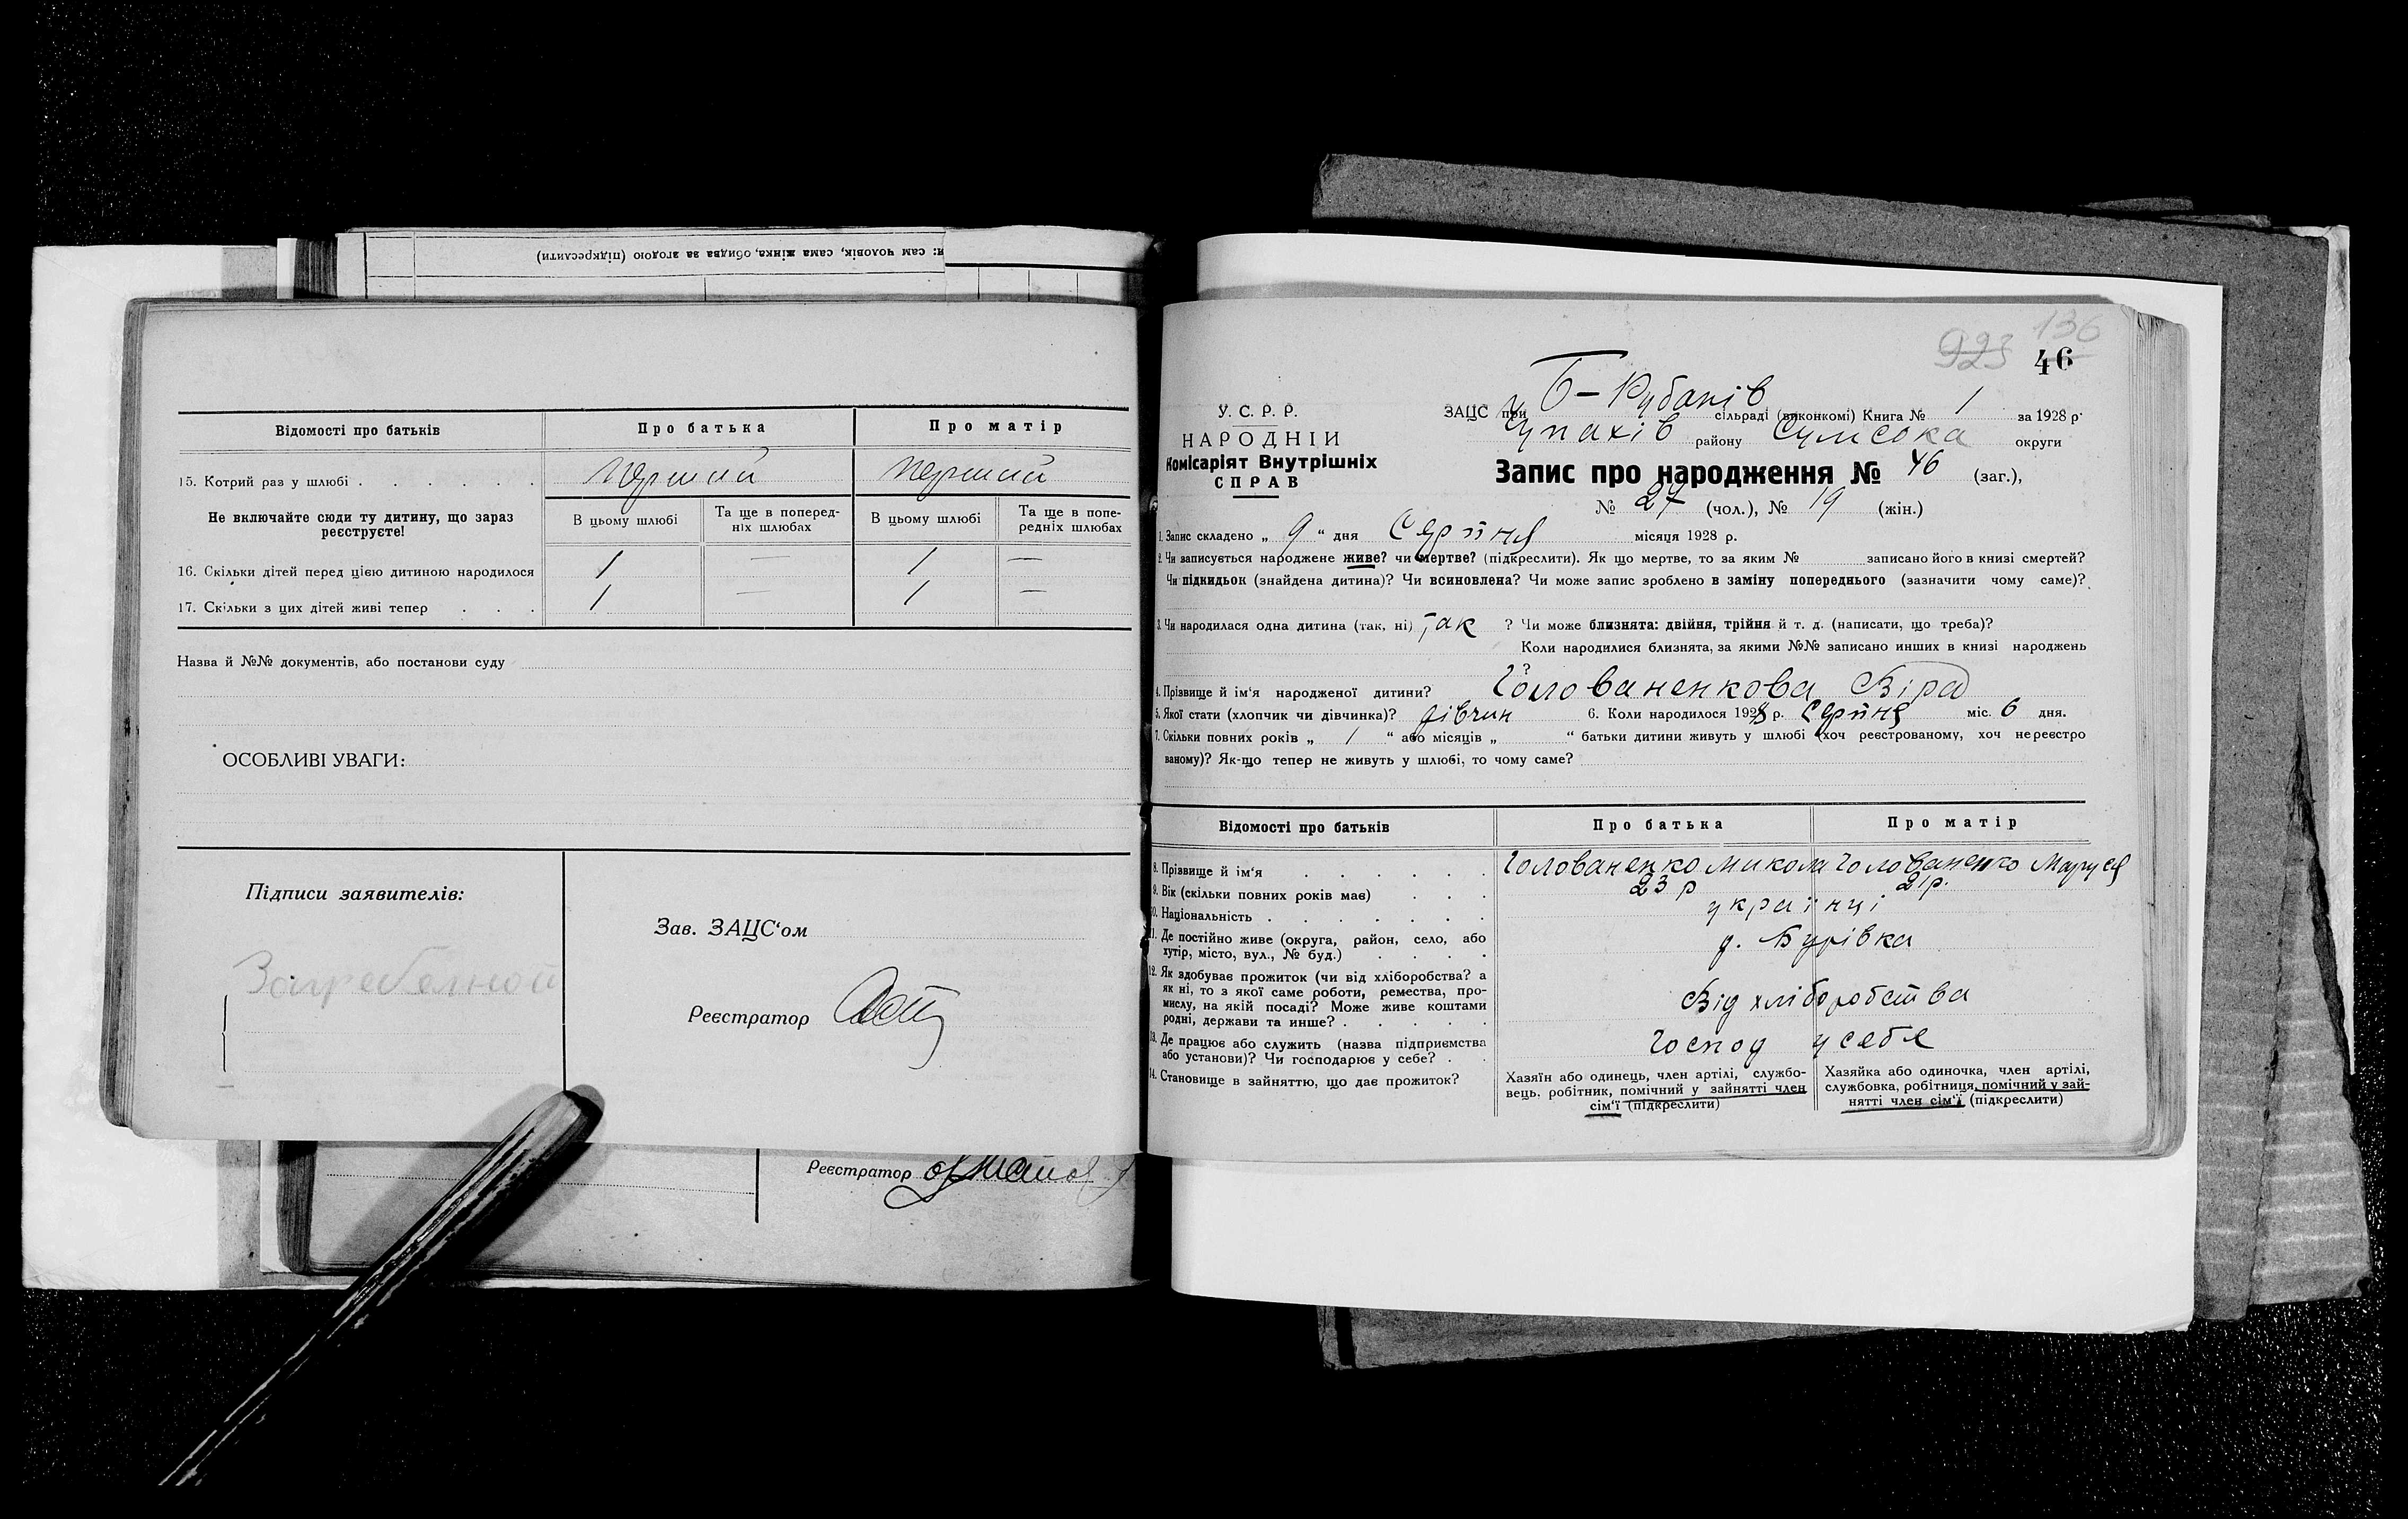 я: сам чоловік, сама жінка, обидва за згодою (підкреслити)
Відомості про батьків
Про батька
Про матір
15. Котрий раз у шлюбі . . . . . .
перший
перший
Не включайте сюди ту дитину, що зараз
реєструєте!
В цьому шлюбі
Та ще в поперед-
ніх шлюбах
В цьому шлюбі
Та ще в попе-
редніх шлюбах
16. Скільки дітей перед цією дитиною народилося
1 — 1 —
17. Скільки з цих дітей живі тепер . . .
1 — 1 —
Назва й №№ документів, або постанови суду
ОСОБЛИВІ УВАГИ:
Підписи заявителів:
Зав. ЗАЦС‘ом
Реєстратор
Реєстратор
923 136
46
У. С. Р. Р.
НАРОДНІЙ
Комісаріят Внутрішніх
СПРАВ
ЗАЦС при Б-Рубанів сільраді (виконкомі) Книга № 1 за 1928 р.
району Сумсока округи
Запис про народження № 46 (заг.),
№ 27 (чол.), № 19 (жін.)
1. Запис складено „ 9 “ дня Серпня місяця 1928 р.
2. Чи записується народжене живе? чи мертве? (підкреслити). Як що мертве, то за яким № записано його в книзі смертей?
Чи підкидьок (знайдена дитина)? Чи всиновлена? Чи може запис зроблено в заміну попереднього (зазначити чому саме)?
3. Чи народилася одна дитина (так, ні) так ? Чи може близнята: двійня, трійня й т. д. (написати, що треба)?
Коли народилися близнята, за якими №№ записано инших в книзі народжень
?
4. Прізвище й ім‘я народженої дитини? Голованенкова Віра
5. Якої стати (хлопчик чи дівчинка)? дівчин 6. Коли народилося 1928 р. Серпня міс. 6 дня.
7. Скільки повних років „ 1 “ або місяців „ “ батьки дитини живуть у шлюбі (хоч реєстрованому, хоч нереєстро
ваному)? Як-що тепер не живуть у шлюбі, то чому саме?
Відомості про батьків
Про батька
Про матір
8. Прізвище й ім‘я . . . . . .
Голованенко Микола
Голованенко Маруся
9. Вік (скільки повних років має) . . .
23 р
21 р.
10. Національність . . . . . . .
українці
11. Де постійно живе (округа, район, село, або
хутір, місто, вул., № буд.) . . . .
д. Бурівка
12. Як здобуває прожиток (чи від хліборобства? а
як ні, то з якої саме роботи, ремества, про-
мислу, на якій посаді? Може живе коштами
родні, держави та инше? . . . . .
Від хліборобства
13. Де працює або служить (назва підприємства
або установи)? Чи господарює у себе? . .
Господ у себе
14. Становище в зайняттю, що дає прожиток?
Хазяїн або одинець, член артілі, службо-
вець, робітник, помічний у зайнятті член
сім‘ї (підкреслити)
Хазяйка або одиночка, член артілі,
службовка, робітниця, помічний у зай-
нятті член сім‘ї (підкреслити)